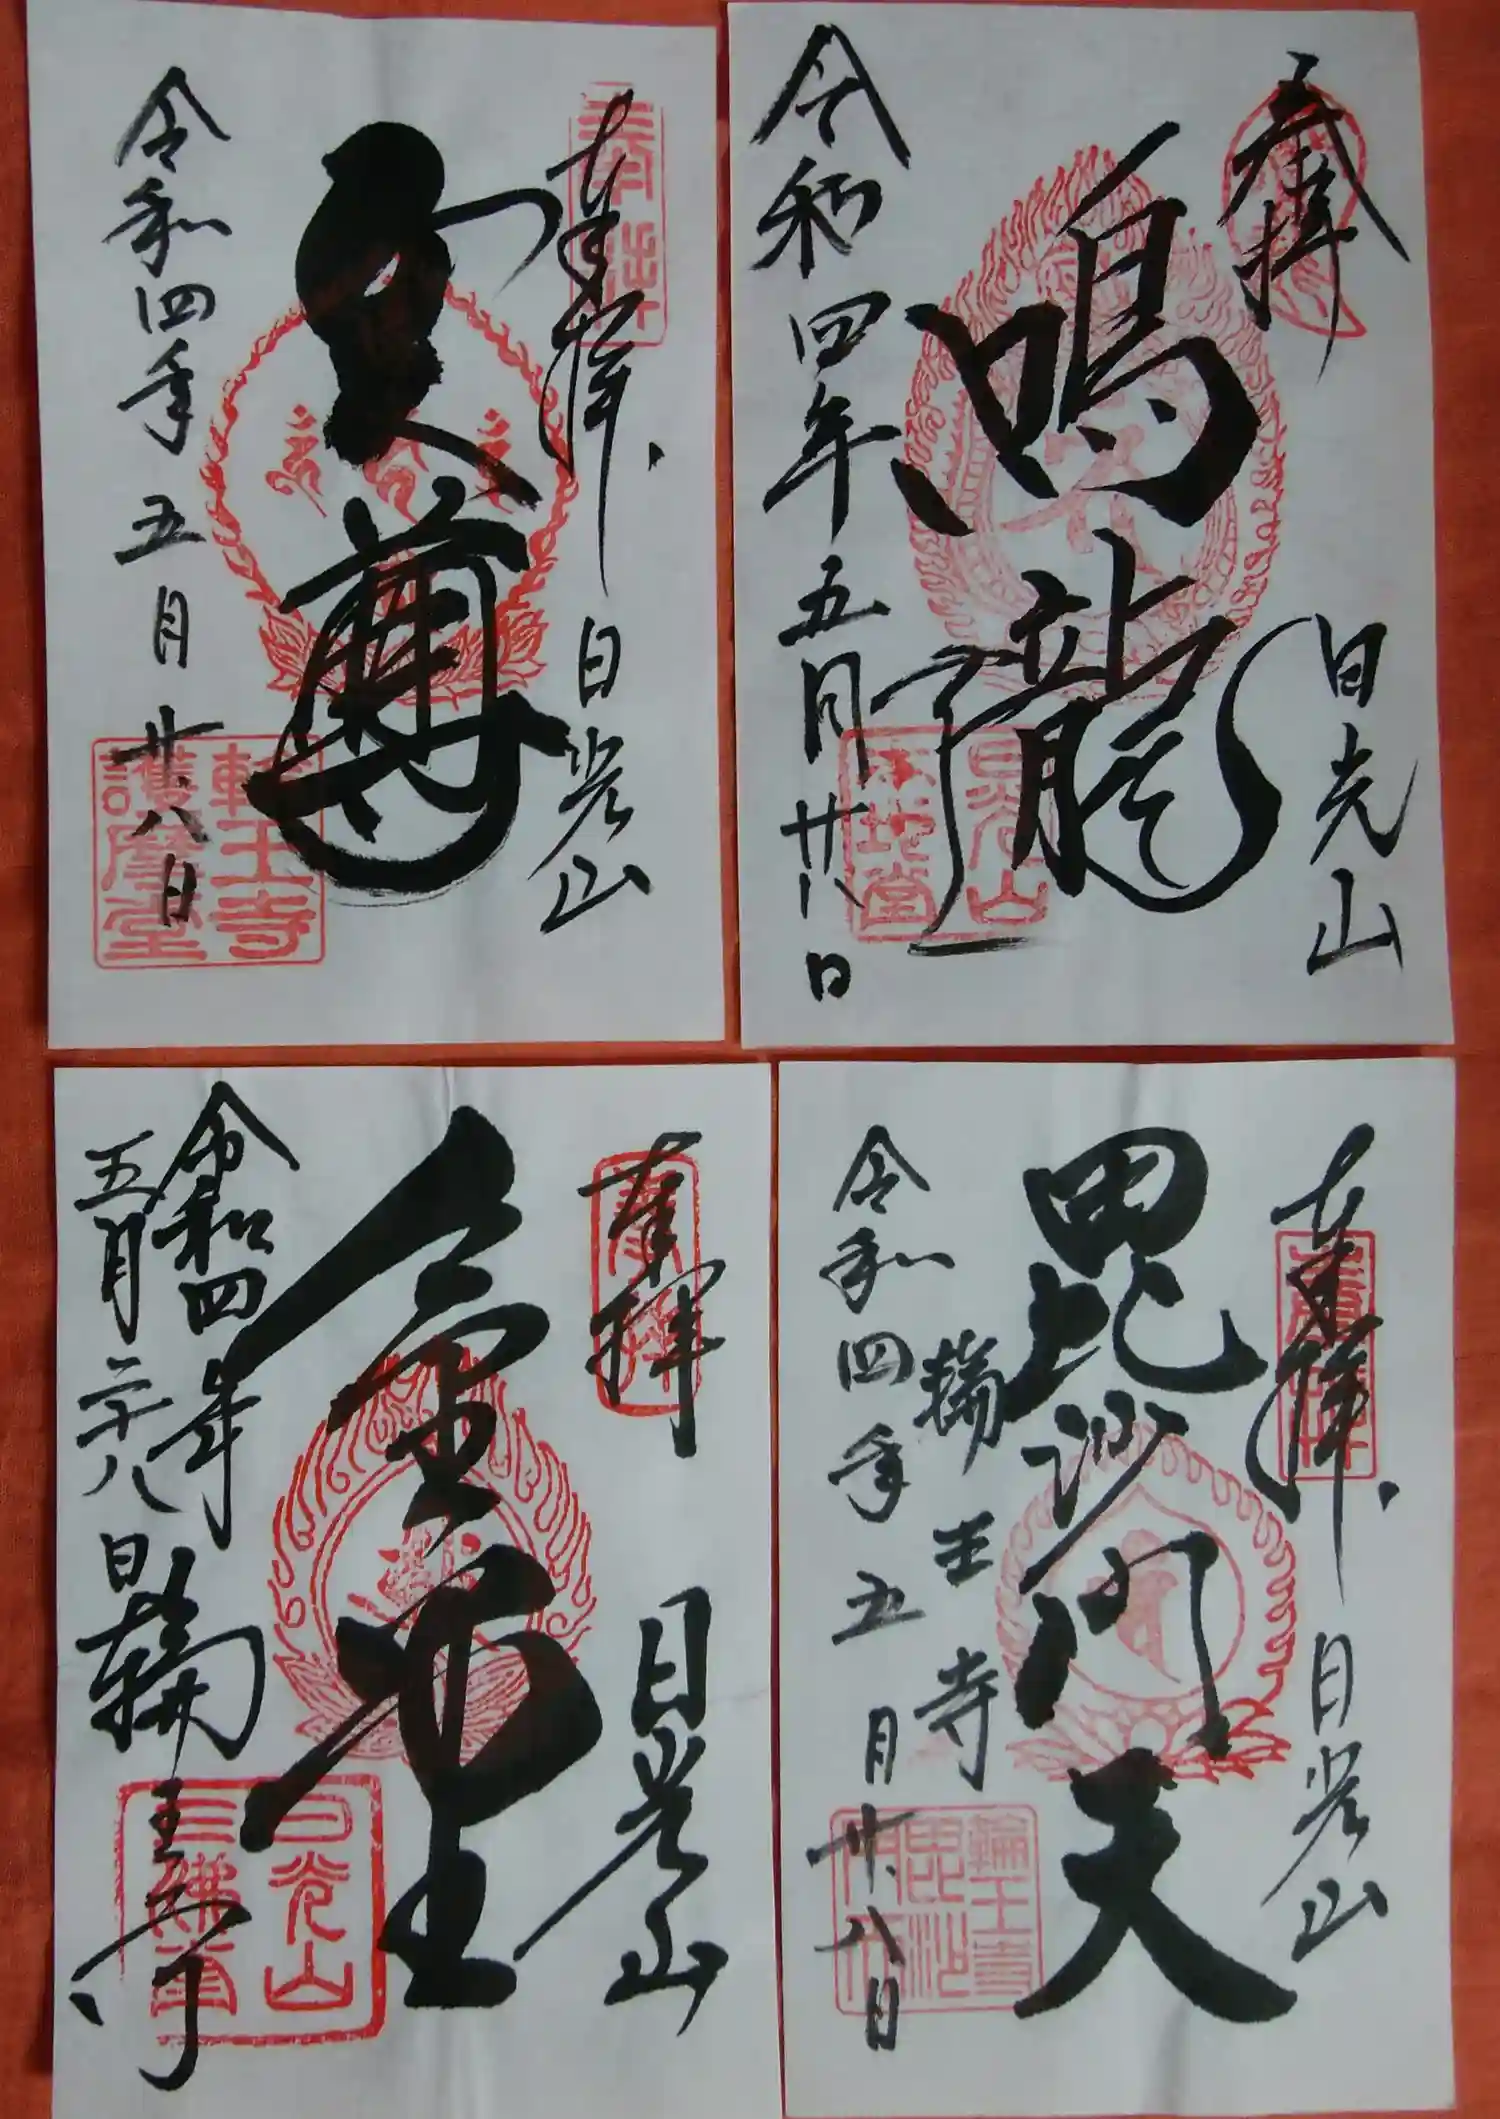 奉拝
日光山
尊
令和四年五月廿八日
輪王寺
護摩堂
奉拝
日光山
鳴龍
令和四年五月廿八日
日光山
本地堂
奉拝
日光山
金堂
令和四年
五月二十八日
輪王寺
日光山
三佛堂
奉拝
日光山
毘沙門天
輪王寺
令和四年五月廿八日
輪王寺
毘沙
門天